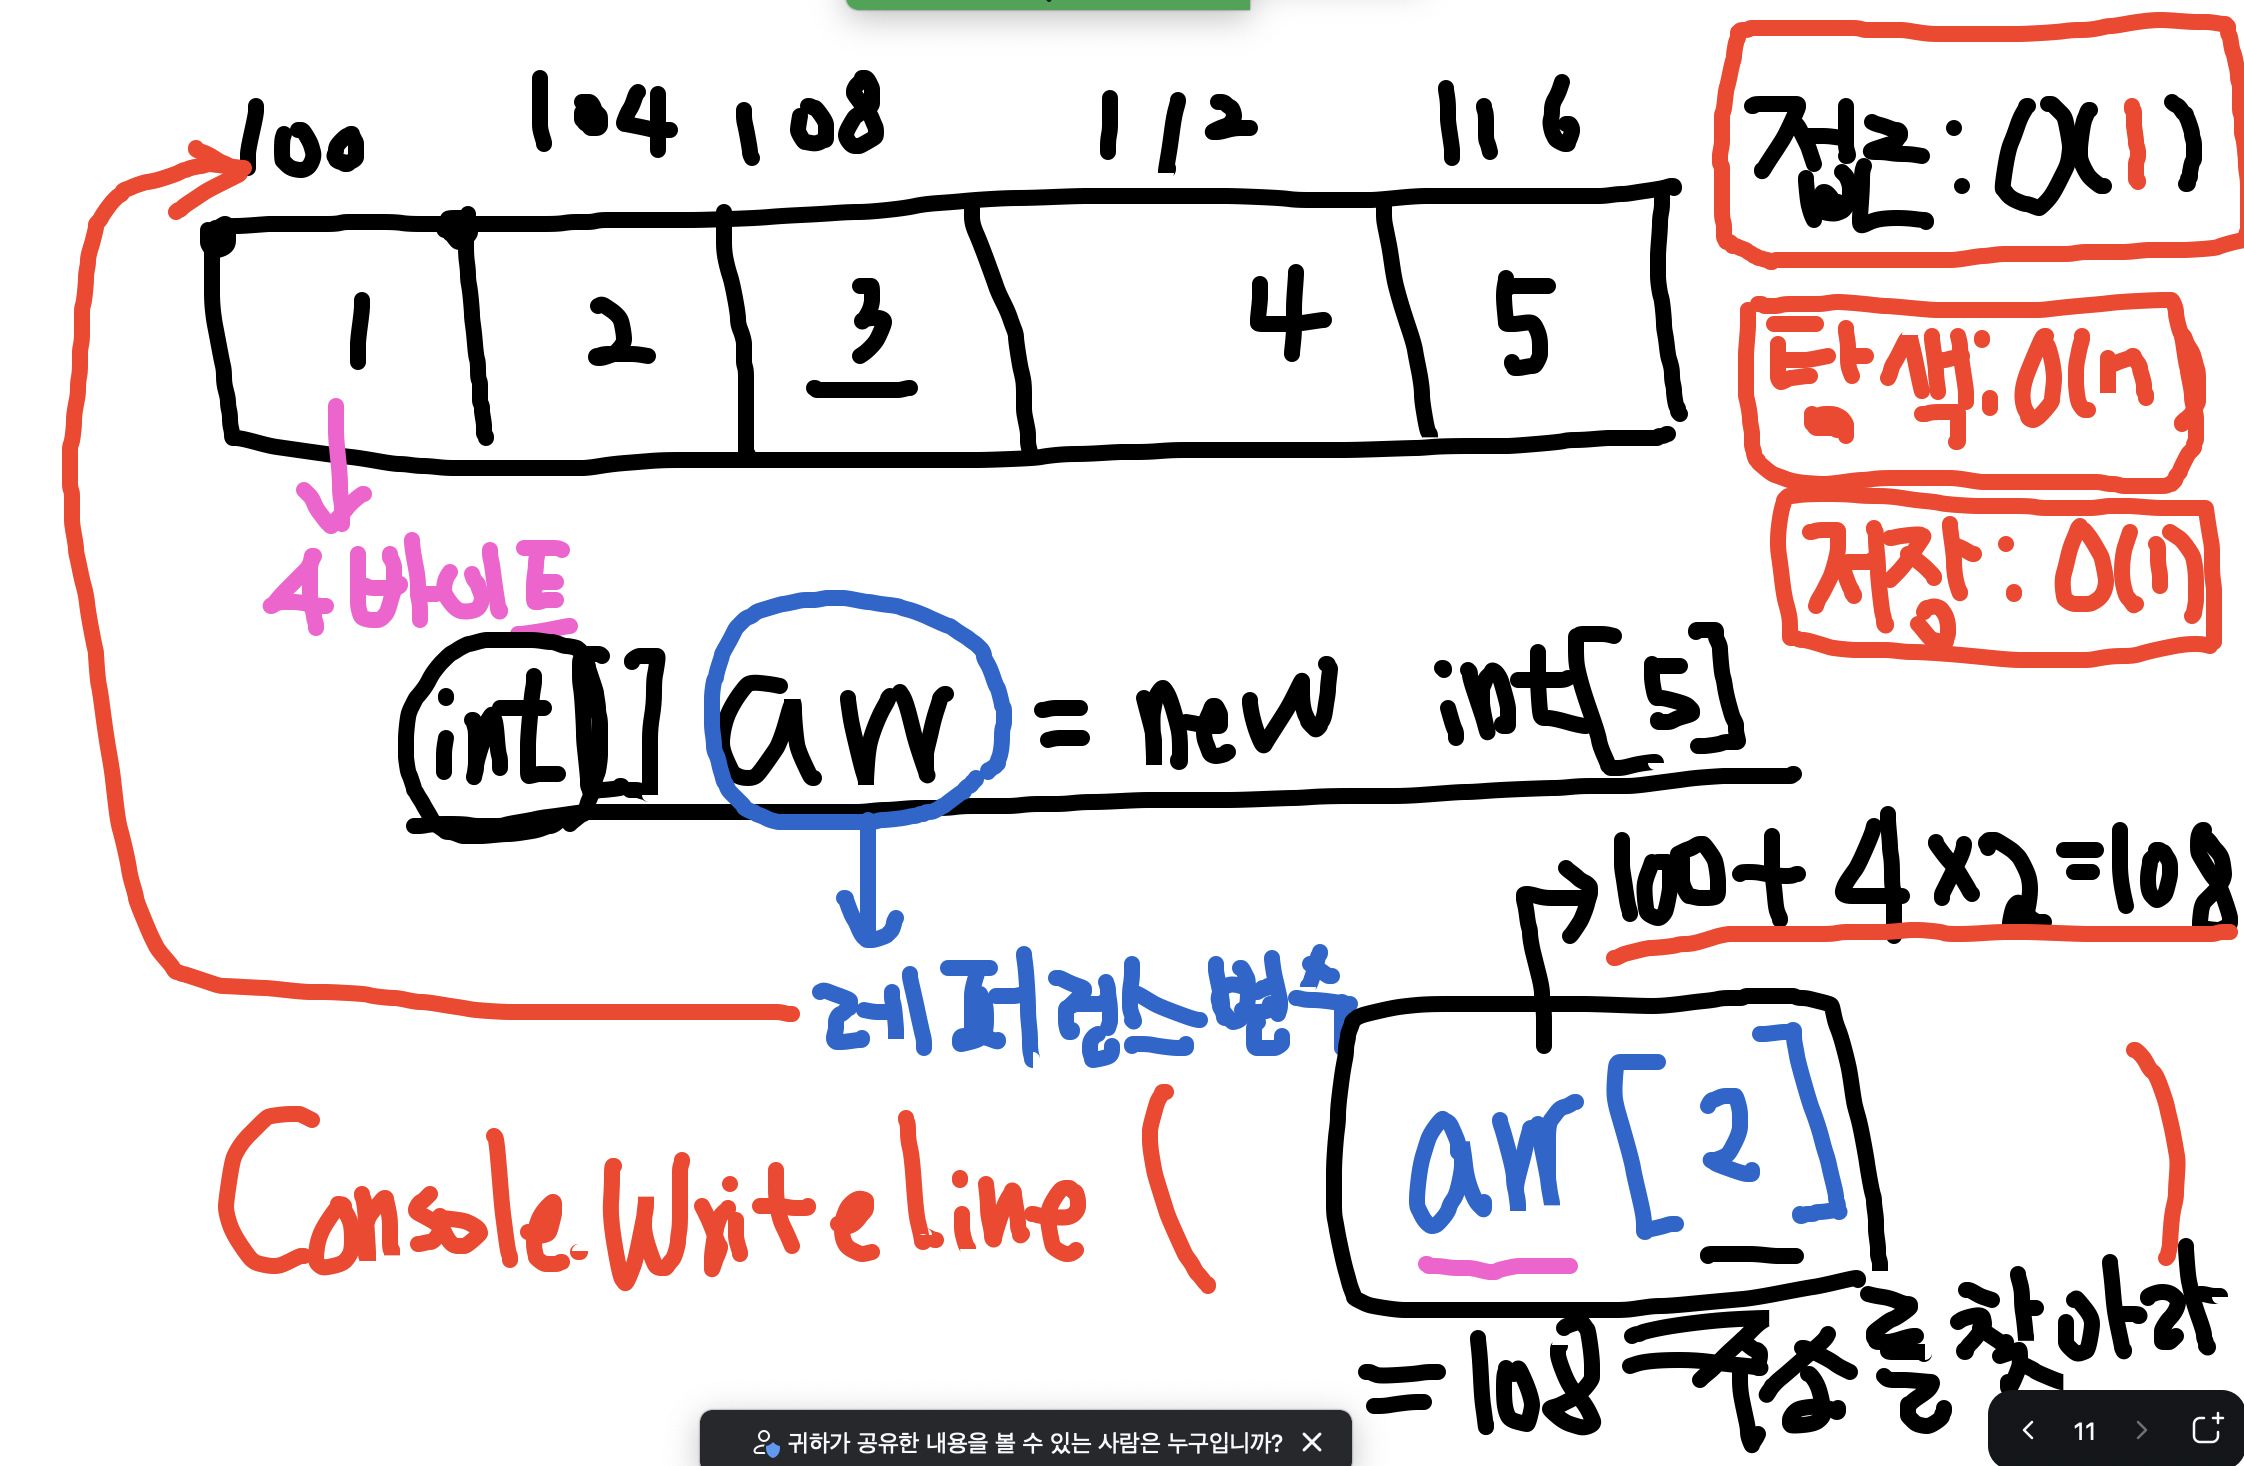 100 104 108 112 116
1 2 3 4 5
접근: O(1)
탐색: O(n)
저장: O(1)
4바이트
int[] arr = new int[5]
100+4×2=108
레퍼런스 변수
Console.WriteLine( arr[2] )
= 108 주소를 찾아가
귀하가 공유한 내용을 볼 수 있는 사람은 누구입니까?
11